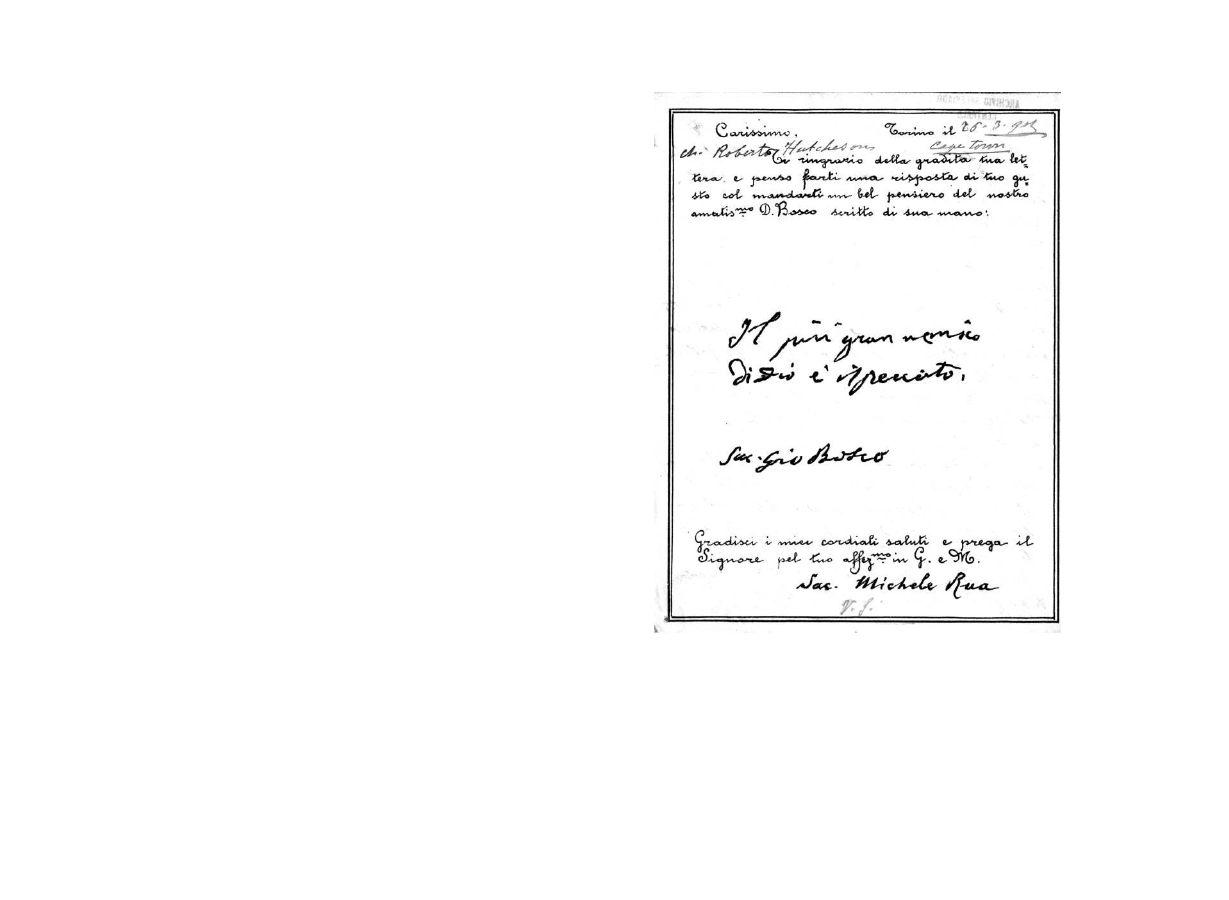 Carissimo, Torino il 26-3-902
ch. Roberto Hutcheson Cape town
Ti ringrazio della gradita tua let-
tera e penso farti una risposta di tuo gu-
sto col mandarti un bel pensiero del nostro
amatismo D. Bosco scritto di sua mano:
Il più gran nemico
di Dio è il peccato.
Sac. Gio Bosco
Gradisci i miei cordiali saluti e prega il
Signore pel tuo affezmo in G. e M.
Sac. Michele Rua